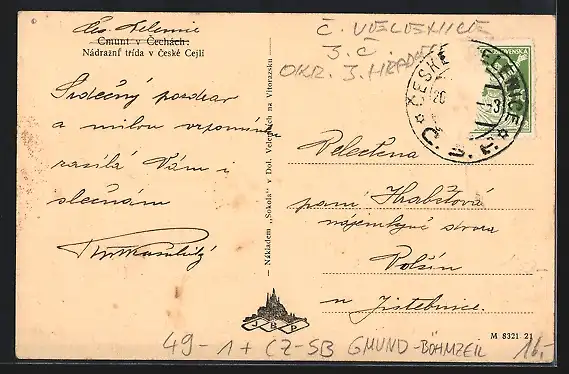 Čes. Velenice
Cmunt v Čechách:
Nádražní třída v České Cejli
Srdečný pozdrav
a milou vzpomínku
zasílá Vám i
slečnám
— Nákladem „Sokola" v Dol. Velenicích na Vitorazsku —
J B P
Č. VELENICE
J. Č.
OKR. J. HRADEC
ČESKÉ VELENICE
Č. S. P.
Velectěná
paní Hrabětová
nájemkyně dvora
Božejov
u Jistebnice.
M 8321 21
49 - 1 + CZ-SB GMUND-BÖHMZEIL
16.-